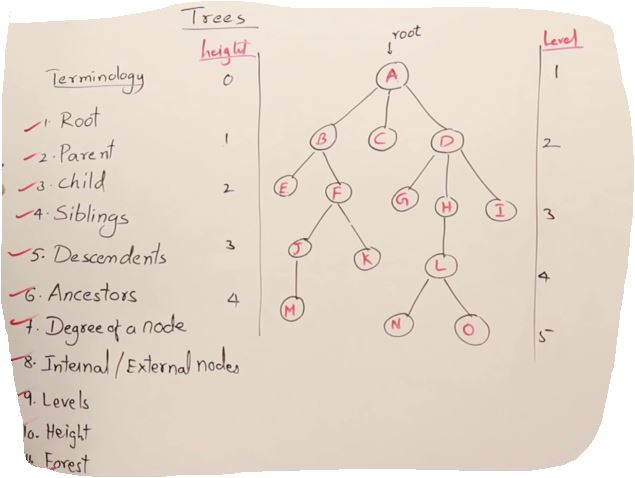 Trees
root
height
Level
Terminology
0
1
A
1. Root
1
B
C
D
2
2. Parent
3. Child
2
E
F
G
H
I
3
4. Siblings
5. Descendents
3
J
K
L
4
6. Ancestors
4
M
N
O
5
7. Degree of a node
8. Internal/External nodes
9. Levels
10. Height
11. Forest